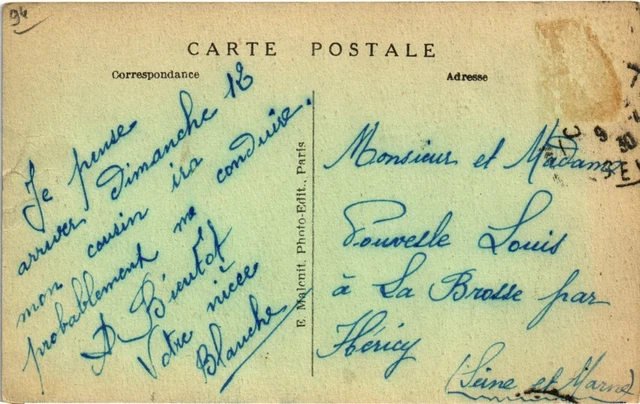 94
CARTE POSTALE
Correspondance
Je pense
arriver Dimanche 12
mon cousin ira
probablement me conduire.
A Bientôt
Votre nièce
Blanche
E. Malcuit, Photo-Edit., Paris
Adresse
Monsieur et Madame
Louis
à La Brosse par
Héricy
(Seine et Marne)
9
30